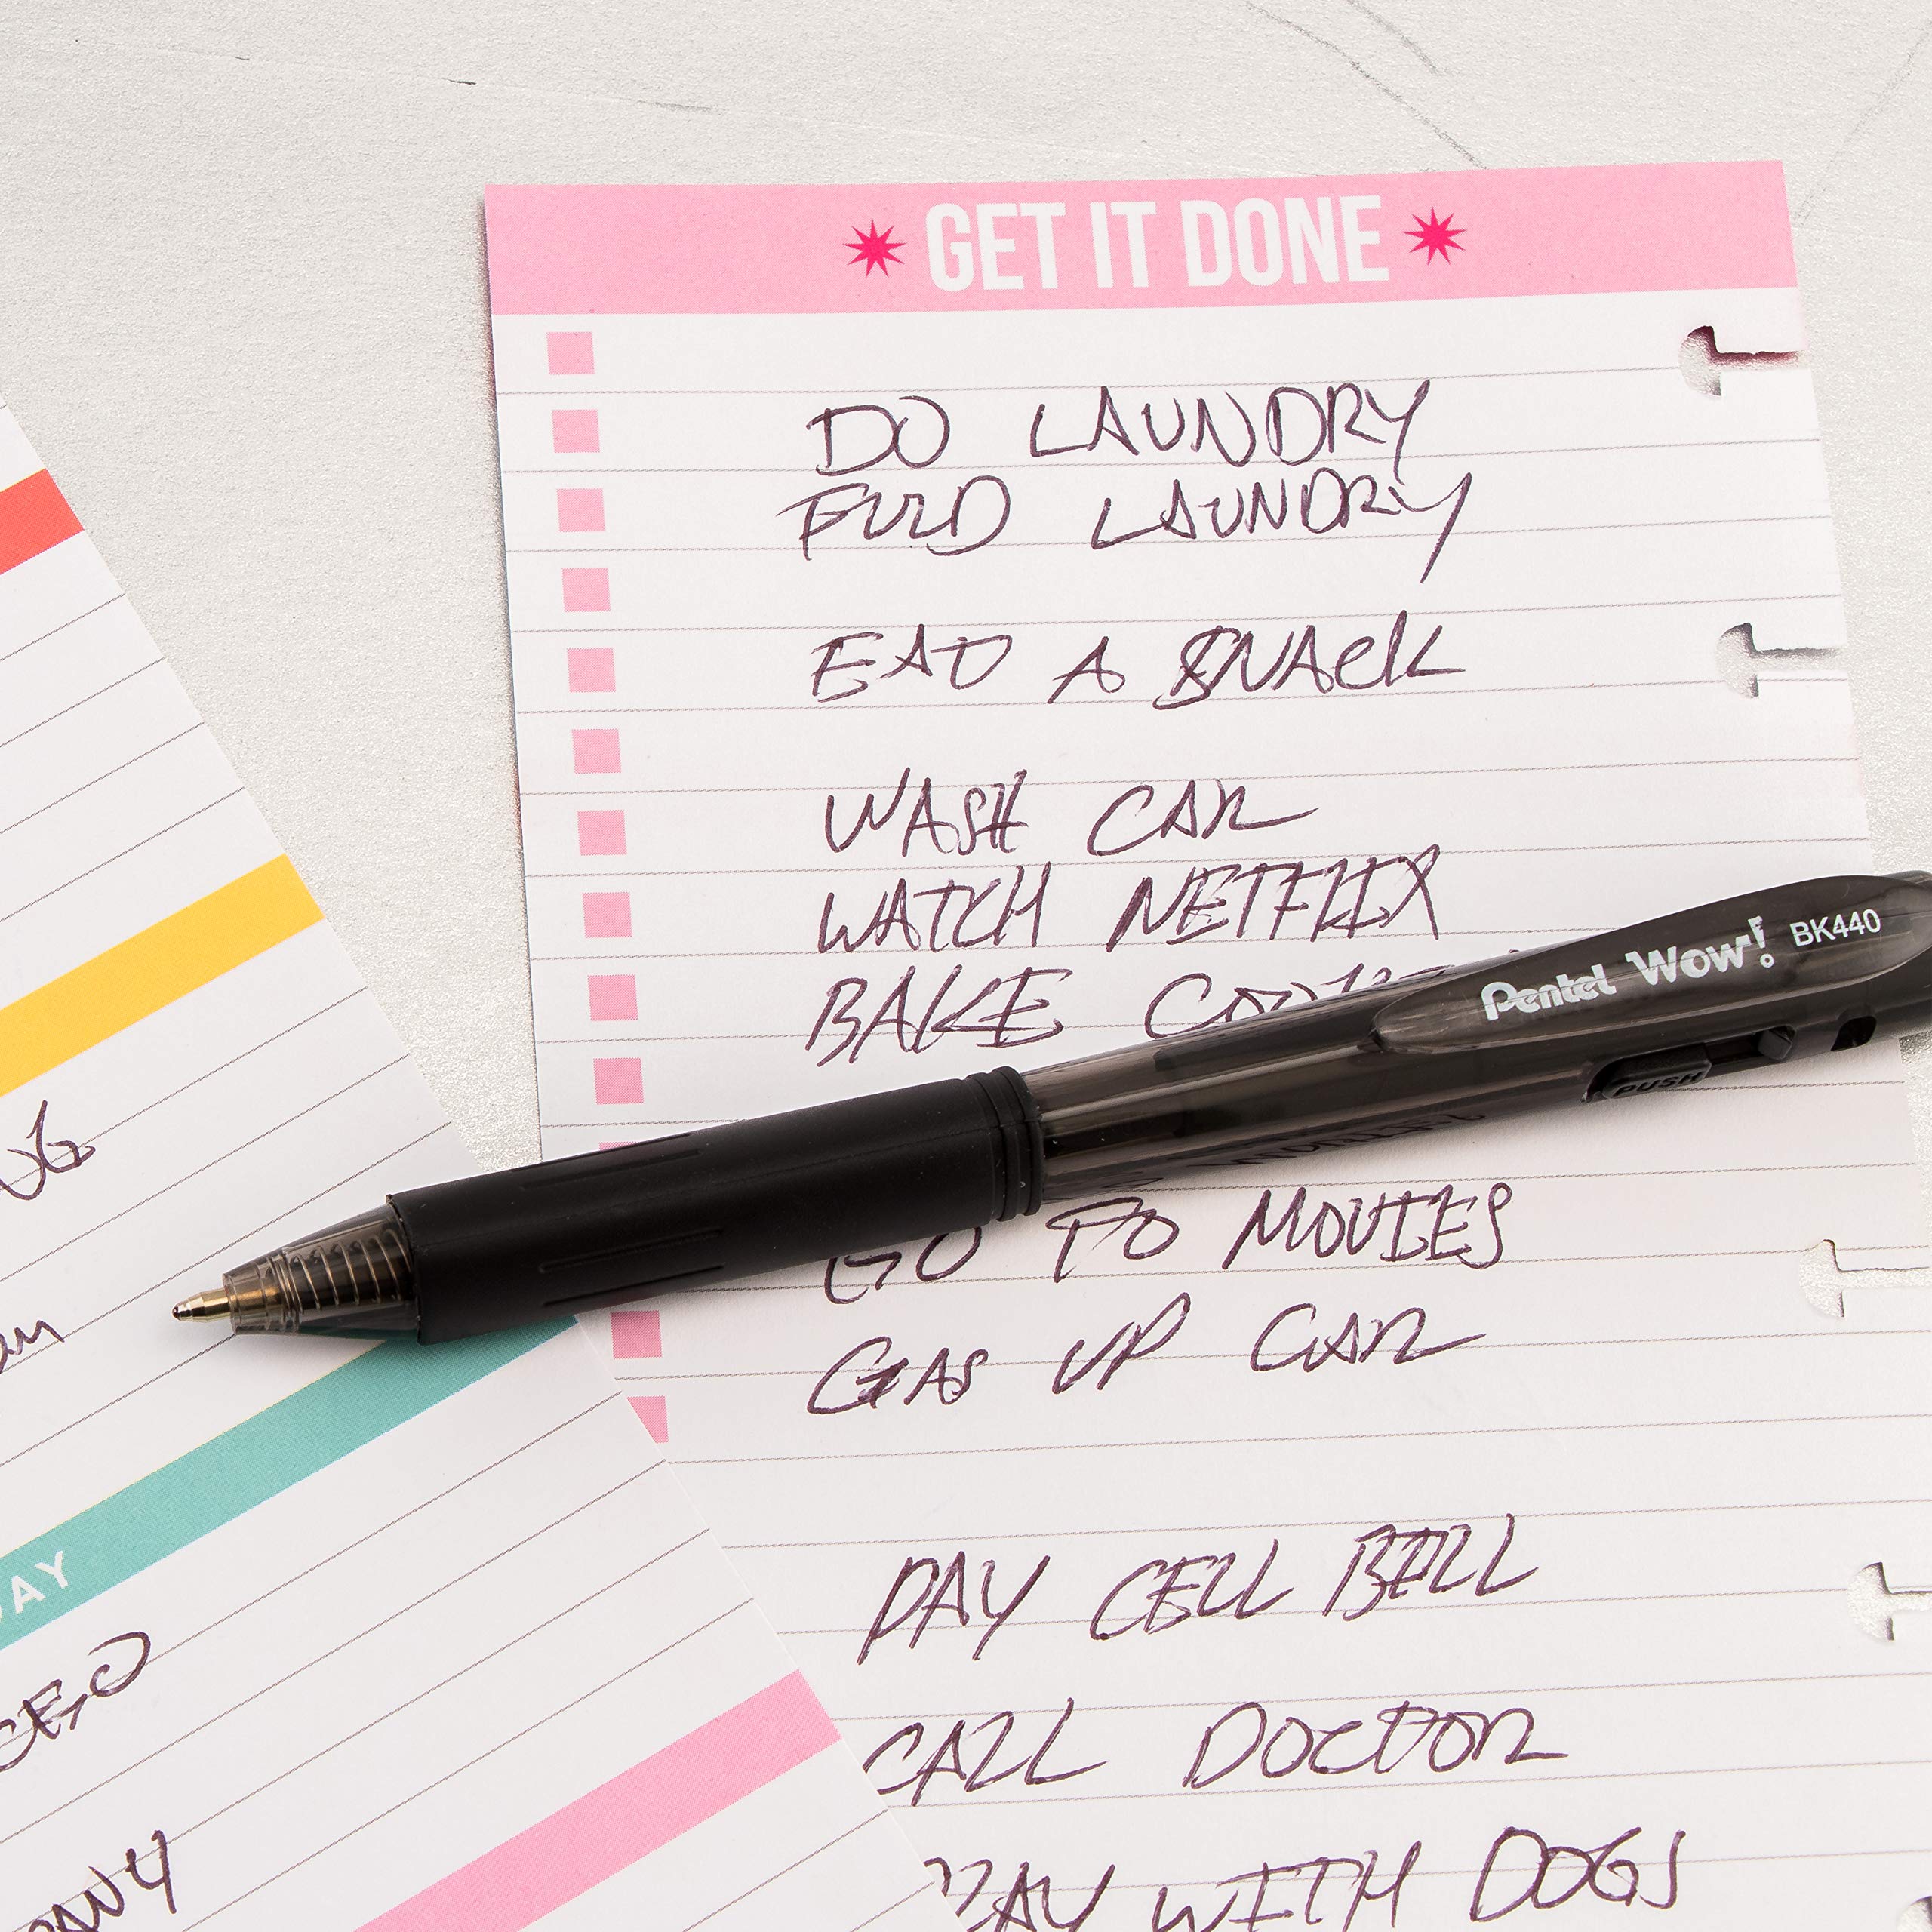 GET IT DONE
DO LAUNDRY
FOLD LAUNDRY
EAT A SNACK
WASH CAR
WATCH NETFLIX
BAKE
Pentel Wow! BK440
PUSH
GO TO MOVIES
GAS UP CAR
PAY CELL BILL
CALL DOCTOR
WITH DOGS
AY